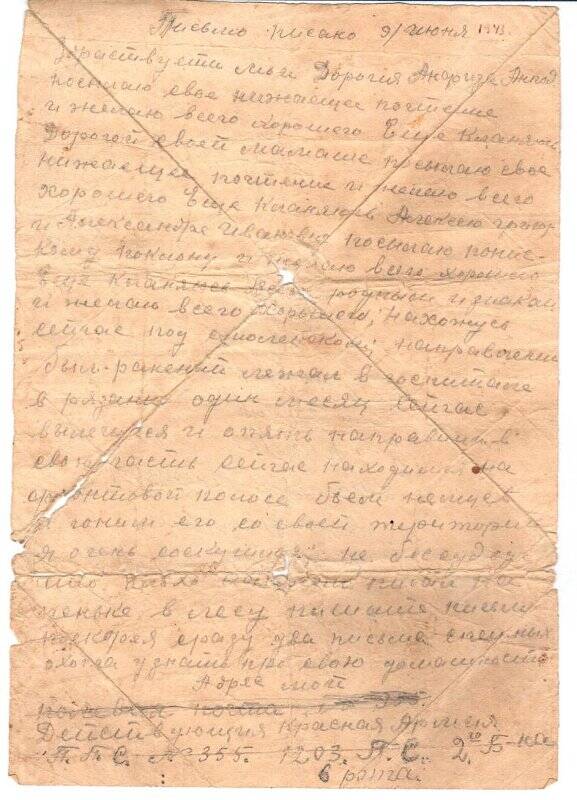 Письмо писано 9/июня 1943
Здраствуети мои Дорогия
посылаю свое нижающее почтение
и желаю всего хорошего Еще Кланяюсь
Дорогой своей мамаше посылаю свое
нижающее почтение и желаю всего
хорошего Еще Кланяюсь Алексею
и Александре Ивановне посылаю понис-
кому поклону и желаю всего хорошего
Еще Кланяюсь всем родным и
и желаю всего хорошего, нахожусь
сейчас под смоленским направлении
был раненый лежал в госпитале
в рязане один месяц сейчас
вылечился и опять направили в
свою часть сейчас находимся на
фронтовой полосе бьем немцев
и гоним его со своей территории
я очень соскучился не
что письмо писал на
пеньке в лесу пишите письма
поскорея сразу два письма
охота узнать про свою домашность
Адряс мой
полевая почта №
Действующия Красная Армия
П.П.С. № 355. 1203. П.С. 2го Б-на
6 рота.